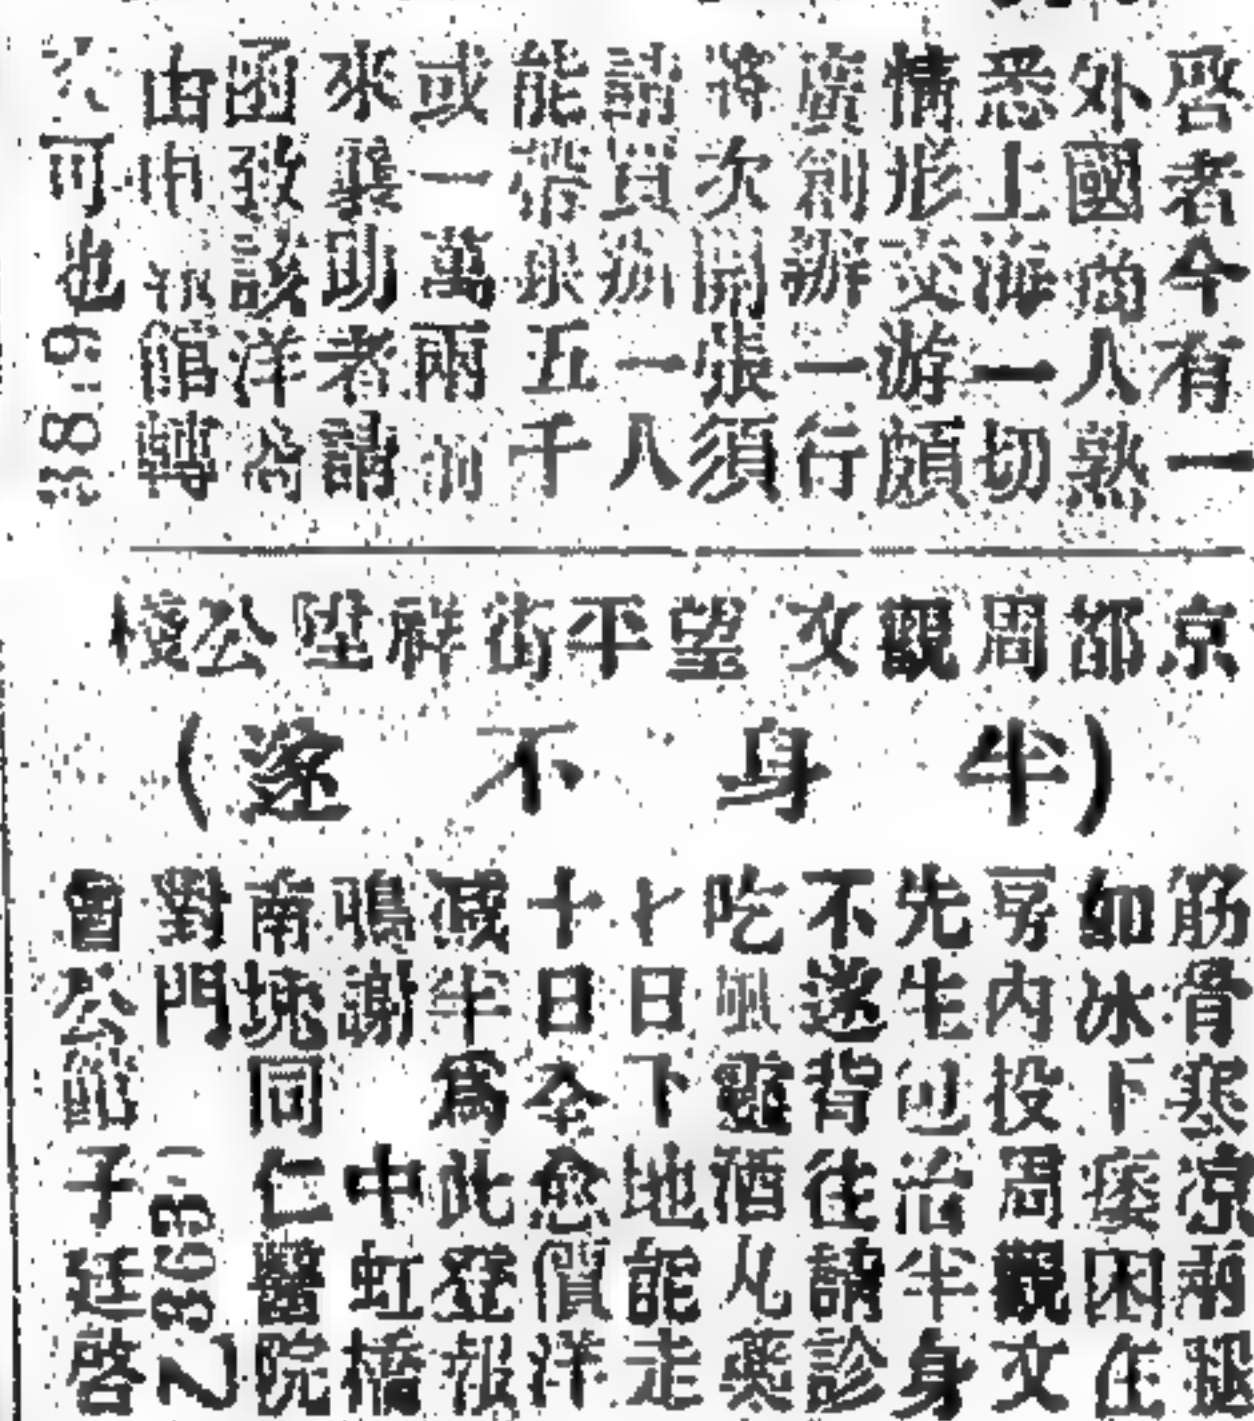 啓者今有一
外國商人熟
悉上海一切
情形交游頗
廣創辦一行
將次開張須
請買辦一人
能帶銀五千
或一萬兩前
來襄助者請
函致該洋商
由申報館轉
交可也
京都周觀文 望平街祥陞公棧
(半身不遂)
筋骨寒凉兩腿
如冰下痿困在
房內投周觀文
先生包治半身
不遂背往請診
吃風靈酒丸藥
七日下地能走
十日全愈價洋
減半爲此登報
鳴謝 中虹橋
南堍同仁醫院
對門
曾公館子廷啓